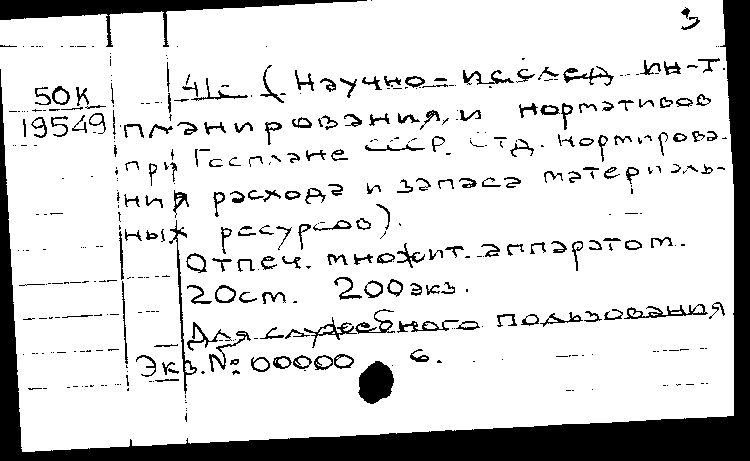 3
50К 41с. (Научно-исслед. ин-т
19549 планирования и нормативов
при Госплане СССР. Отд. нормирова-
ния расхода и запаса материаль-
ных ресурсов).
Отпеч. множит. аппаратом.
20см. 200экз.
Для служебного пользования
Экз. № 00000 6.